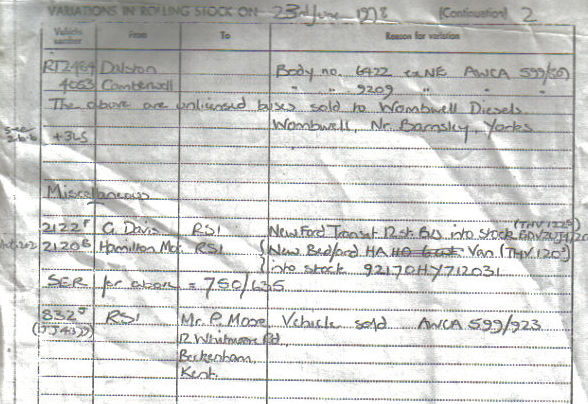 VARIATIONS IN ROLLING STOCK ON 23rd June 1978 (Continuation) 2
Vehicle number From To Reason for variation
RT2464 Dalston Body no. 6422 ex NE AWCA 599/
4053 Camberwell " " 9209 " " "
The above are unlicensed buses sold to Wombwell Diesels
Wombwell, Nr. Barnsley, Yorks
+3LS
Miscellaneous
(THV 122S)
2122F G. Davis RS1 New Ford Transit 12 st. Bus into stock
2120B Hamilton Mo. RS1 (New Bedford HA Van (THV 120S)
into stock 92170HY712031
SER for above = 750/635
832 RS1 Mr. P. Moore Vehicle sold AWCA 599/923
12 Whitmore Rd,
Beckenham,
Kent.